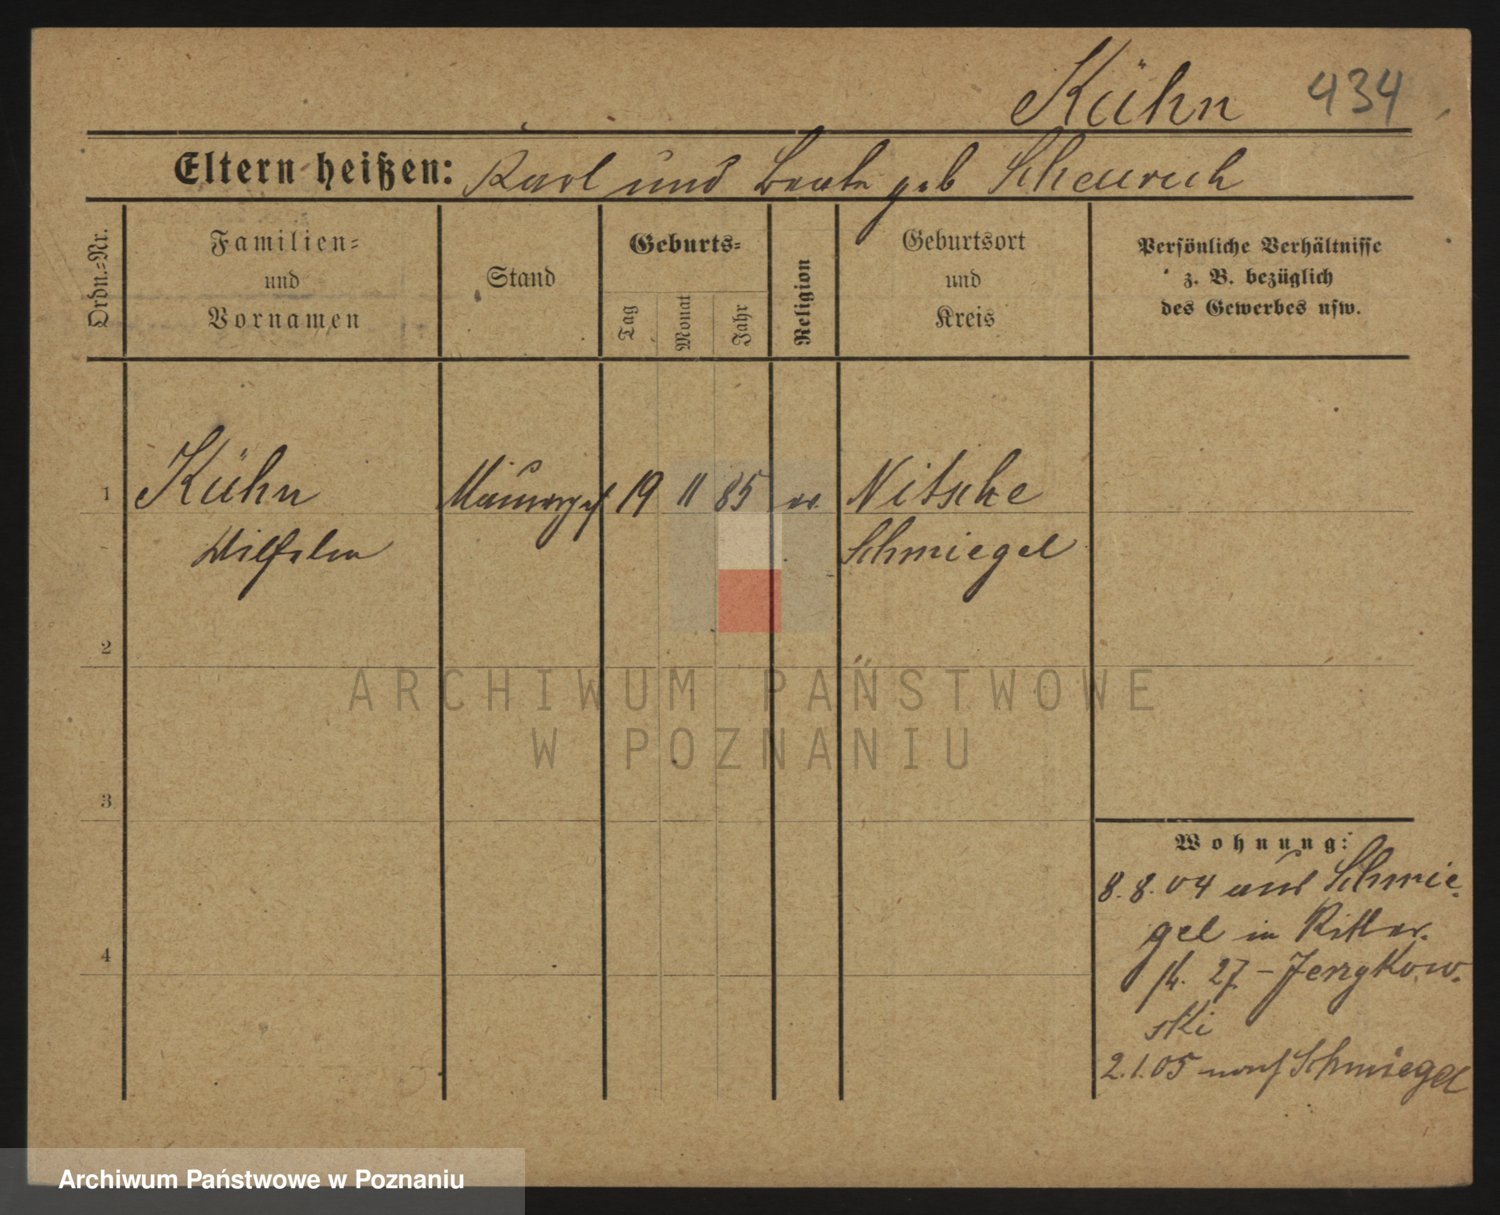 Kühn 434
Eltern heißen: Karl und Beate geb Scheurich
Ordn.=Nr.
Familien=
und
Vornamen
Stand
Geburts=
Tag
Monat
Jahr
Religion
Geburtsort
und
Kreis
Persönliche Verhältnisse
z. B. bezüglich
des Gewerbes usw.
1 Kühn 19 11 85 ev. Nitsche
Wilhelm Schmiegel
2
3
4
Wohnung:
8.8.04 aus Schmie-
gel in Ritter-
st. 27 - Jerzykow-
ski
2.1.05 nach Schmiegel
ARCHIWUM PAŃSTWOWE
W POZNANIU
Archiwum Państwowe w Poznaniu